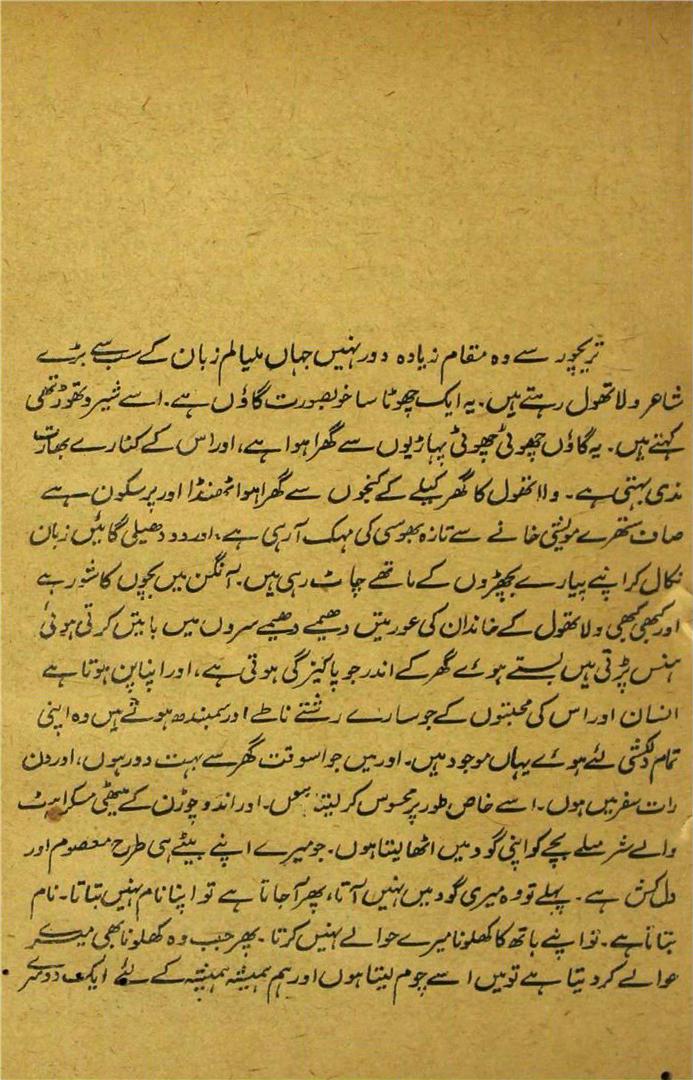 تریچور سے وہ مقام زیادہ دور نہیں جہاں ملیالم زبان کے سب سے بڑے
شاعر ولاتھول رہتے ہیں۔ یہ ایک چھوٹا سا خوبصورت گاؤں ہے۔ اسے شیروتھوڑتھی
کہتے ہیں۔ یہ گاؤں چھوٹی چھوٹی پہاڑیوں سے گھرا ہوا ہے، اور اس کے کنارے بھارت
ندی بہتی ہے۔ ولاتھول کا گھر کیلے کے کنجوں سے گھرا ہوا ٹھنڈا اور پر سکون ہے
صاف ستھرے مویشی خانے سے تازہ بھوسی کی مہک آ رہی ہے، اور دو دھیلی گائیں زبان
نکال کر اپنے پیارے بچھڑوں کے ماتھے چاٹ رہی ہیں۔ آنگن میں بچوں کا شور ہے
اور کبھی کبھی ولاتھول کے خاندان کی عورتیں دھیمے دھیمے سروں میں باتیں کرتی ہوئی
ہنس پڑتی ہیں بستے ہوئے گھر کے اندر جو پاکیزگی ہوتی ہے، اور اپنا پن ہوتا ہے
انسان اور اس کی محبتوں کے جو سارے رشتے ناطے اور سمبندھ ہوتے ہیں وہ اپنی
تمام دلکشی لئے ہوئے یہاں موجود ہیں۔ اور میں جو اسوقت گھر سے بہت دور ہوں، اور دن
رات سفر میں ہوں۔ اسے خاص طور پر محسوس کر لیتا ہوں۔ اور اندوچوڑن کے میٹھی مسکراہٹ
والے شرمیلے بچے کو اپنی گود میں اٹھا لیتا ہوں۔ جو میرے اپنے بیٹے ہی طرح معصوم اور
دل کش ہے۔ پہلے تو وہ میری گود میں نہیں آتا، پھر آ جاتا ہے تو اپنا نام نہیں بتاتا۔ نام
بتاتا ہے۔ تو اپنے ہاتھ کا کھلونا میرے حوالے نہیں کرتا۔ پھر جب وہ کھلونا بھی میرے
حوالے کر دیتا ہے تو میں اسے چوم لیتا ہوں اور ہم ہمیشہ ہمیشہ کے لئے ایک دوسرے